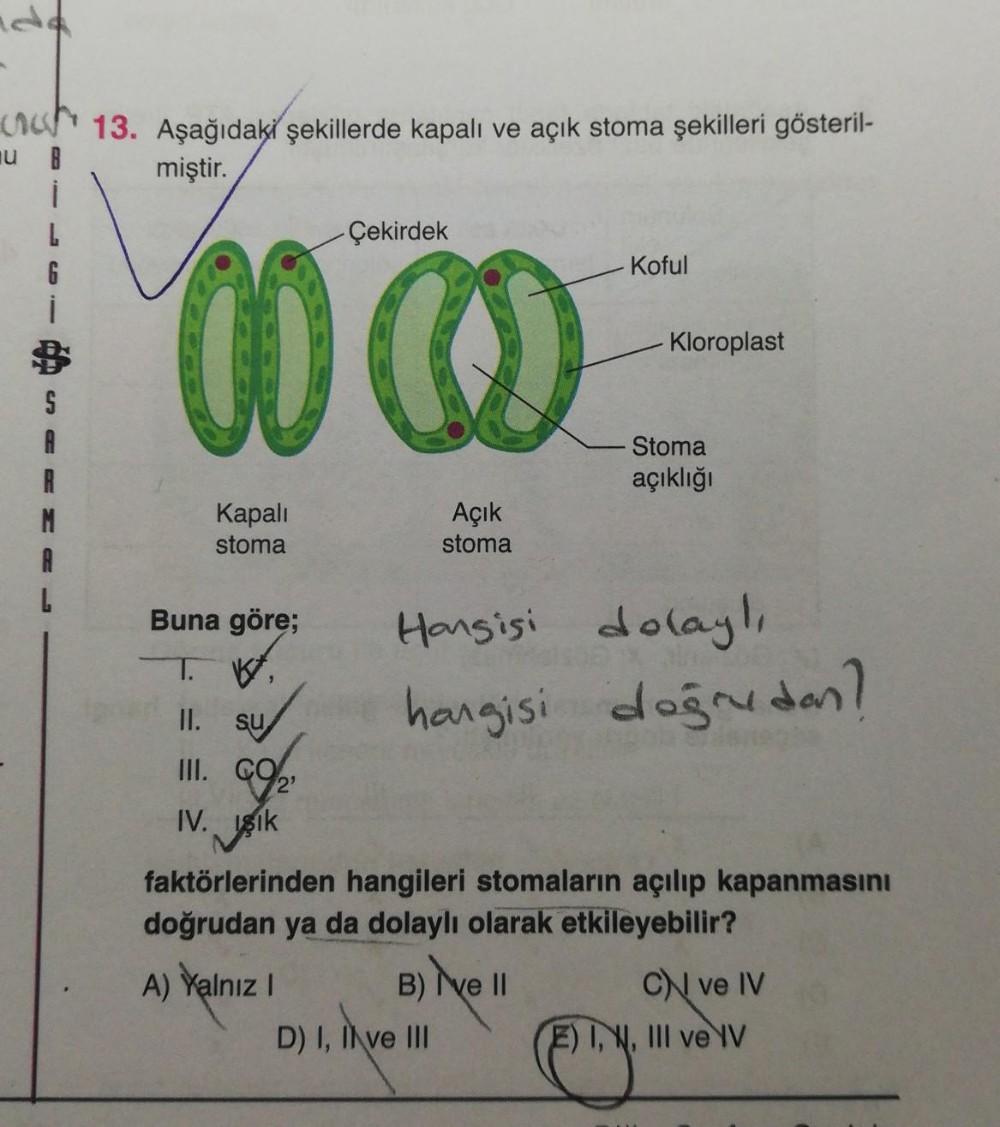 BİLGİ SARMAL
13. Aşağıdaki şekillerde kapalı ve açık stoma şekilleri gösteril-
miştir.
Çekirdek
Koful
Kloroplast
Stoma
açıklığı
Kapalı
stoma
Açık
stoma
Buna göre;
Hangisi dolaylı
hangisi doğrudan?
I. K⁺,
II. su,
III. CO₂,
IV. ışık
faktörlerinden hangileri stomaların açılıp kapanmasını
doğrudan ya da dolaylı olarak etkileyebilir?
A) Yalnız I B) I ve II C) I ve IV
D) I, II ve III E) I, II, III ve IV